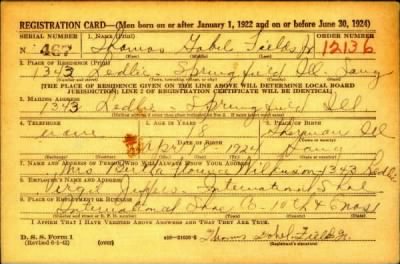 REGISTRATION CARD—(Men born on or after January 1, 1922 and on or before June 30, 1924)
SERIAL NUMBER 1. NAME (Print) ORDER NUMBER
N 467 Thomas Fields Jr 12136
2. PLACE OF RESIDENCE (Print)
1343 Ledlie Springfield Ill Sang
[THE PLACE OF RESIDENCE GIVEN ON THE LINE ABOVE WILL DETERMINE LOCAL BOARD
JURISDICTION; LINE 2 OF REGISTRATION CERTIFICATE WILL BE IDENTICAL]
3. MAILING ADDRESS
1343 Ledlie Springfield Ill
4. TELEPHONE 5. AGE IN YEARS 6. PLACE OF BIRTH
none 18 Sherman Ill
DATE OF BIRTH
18 1924 Sang
7. NAME AND ADDRESS OF PERSON WHO WILL ALWAYS KNOW YOUR ADDRESS
Mrs 1343 Ledlie
8. EMPLOYER'S NAME AND ADDRESS
International Shoe
9. PLACE OF EMPLOYMENT OR BUSINESS
International Shoe Co - 10th &
I AFFIRM THAT I HAVE VERIFIED ABOVE ANSWERS AND THAT THEY ARE TRUE.
D. S. S. Form 1
(Revised 6-1-42) Thomas Fields Jr
(Registrant's signature)